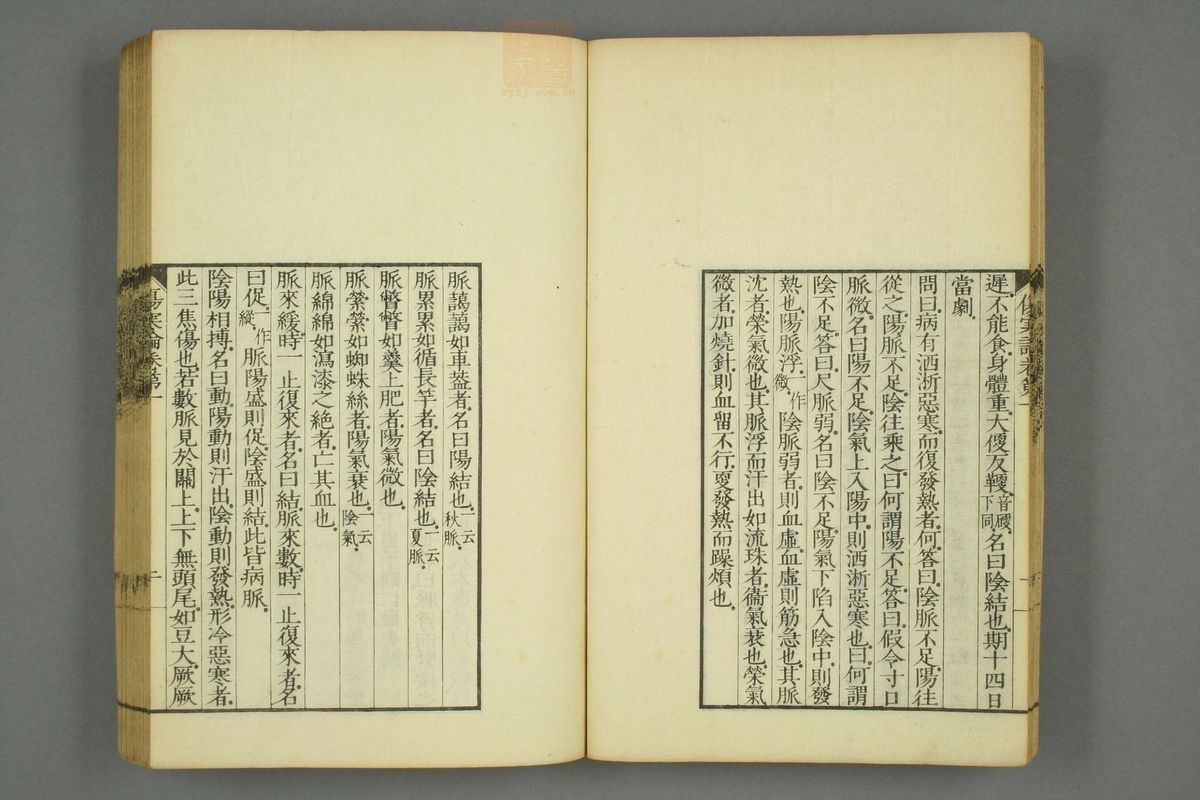 遲不能食身體重大便反鞕音硬下同名曰陰結也期十四日
當劇
問曰病有洒淅惡寒而復發熱者何答曰陰脈不足陽往
從之陽脈不足陰往乘之曰何謂陽不足答曰假令寸口
脈微名曰陽不足陰氣上入陽中則洒淅惡寒也曰何謂
陰不足答曰尺脈弱名曰陰不足陽氣下陷入陰中則發
熱也陽脈浮一作微陰脈弱者則血虛血虛則筋急也其脈
沈者榮氣微也其脈浮而汗出如流珠者衞氣衰也榮氣
微者加燒針則血留不行更發熱而躁煩也
脈藹藹如車葢者名曰陽結也一云秋脈
脈累累如循長竿者名曰陰結也一云夏脈
脈瞥瞥如羹上肥者陽氣微也
脈縈縈如蜘蛛絲者陽氣衰也一云陰氣
脈綿綿如瀉漆之絶者亡其血也
脈來緩時一止復來者名曰結脈來數時一止復來者名
曰促一作縱脈陽盛則促陰盛則結此皆病脈
陰陽相搏名曰動陽動則汗出陰動則發熱形冷惡寒者
此三焦傷也若數脈見於關上上下無頭尾如豆大厥厥
傷寒論卷第一
二
zysj.com.cn